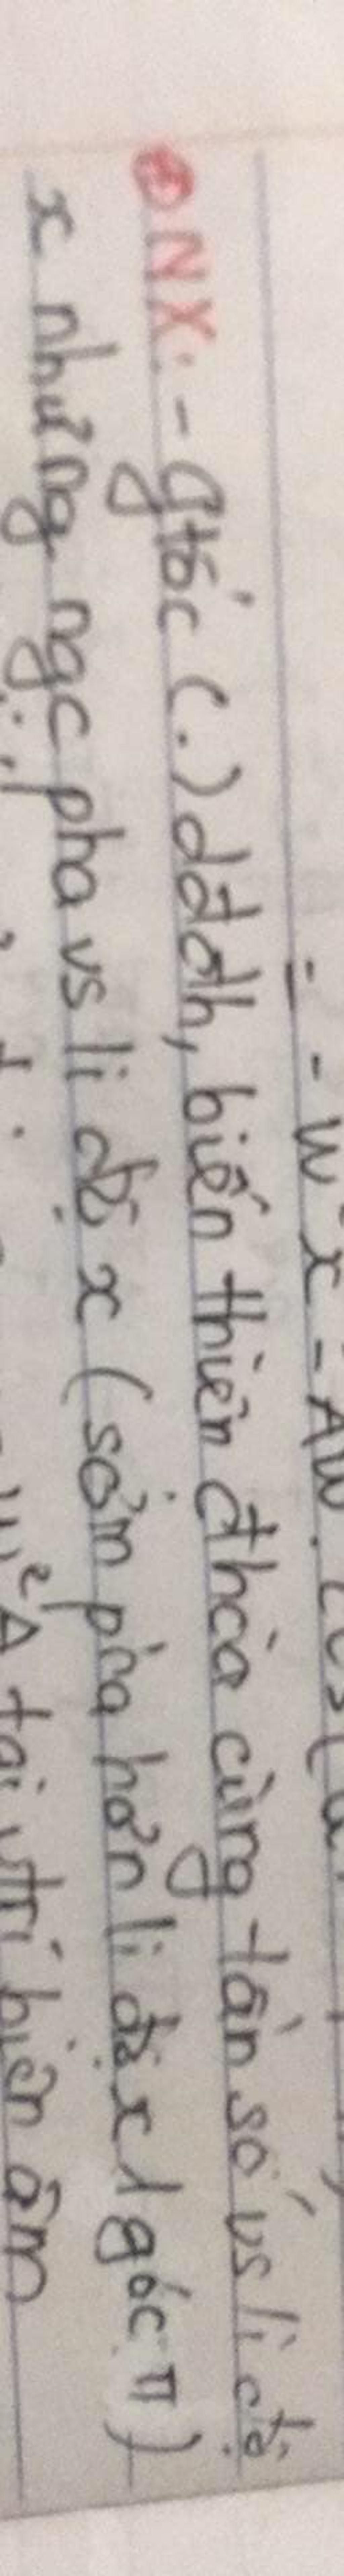 = - w²x = Aw
⊕ NX: - gtốc (.) dđđh, biến thiên đhòa cùng tần số vs li độ
x nhưng ngc pha vs li độ x (sớm pha hơn li độ x 1 góc π)
w²A tại vtrí biên âm